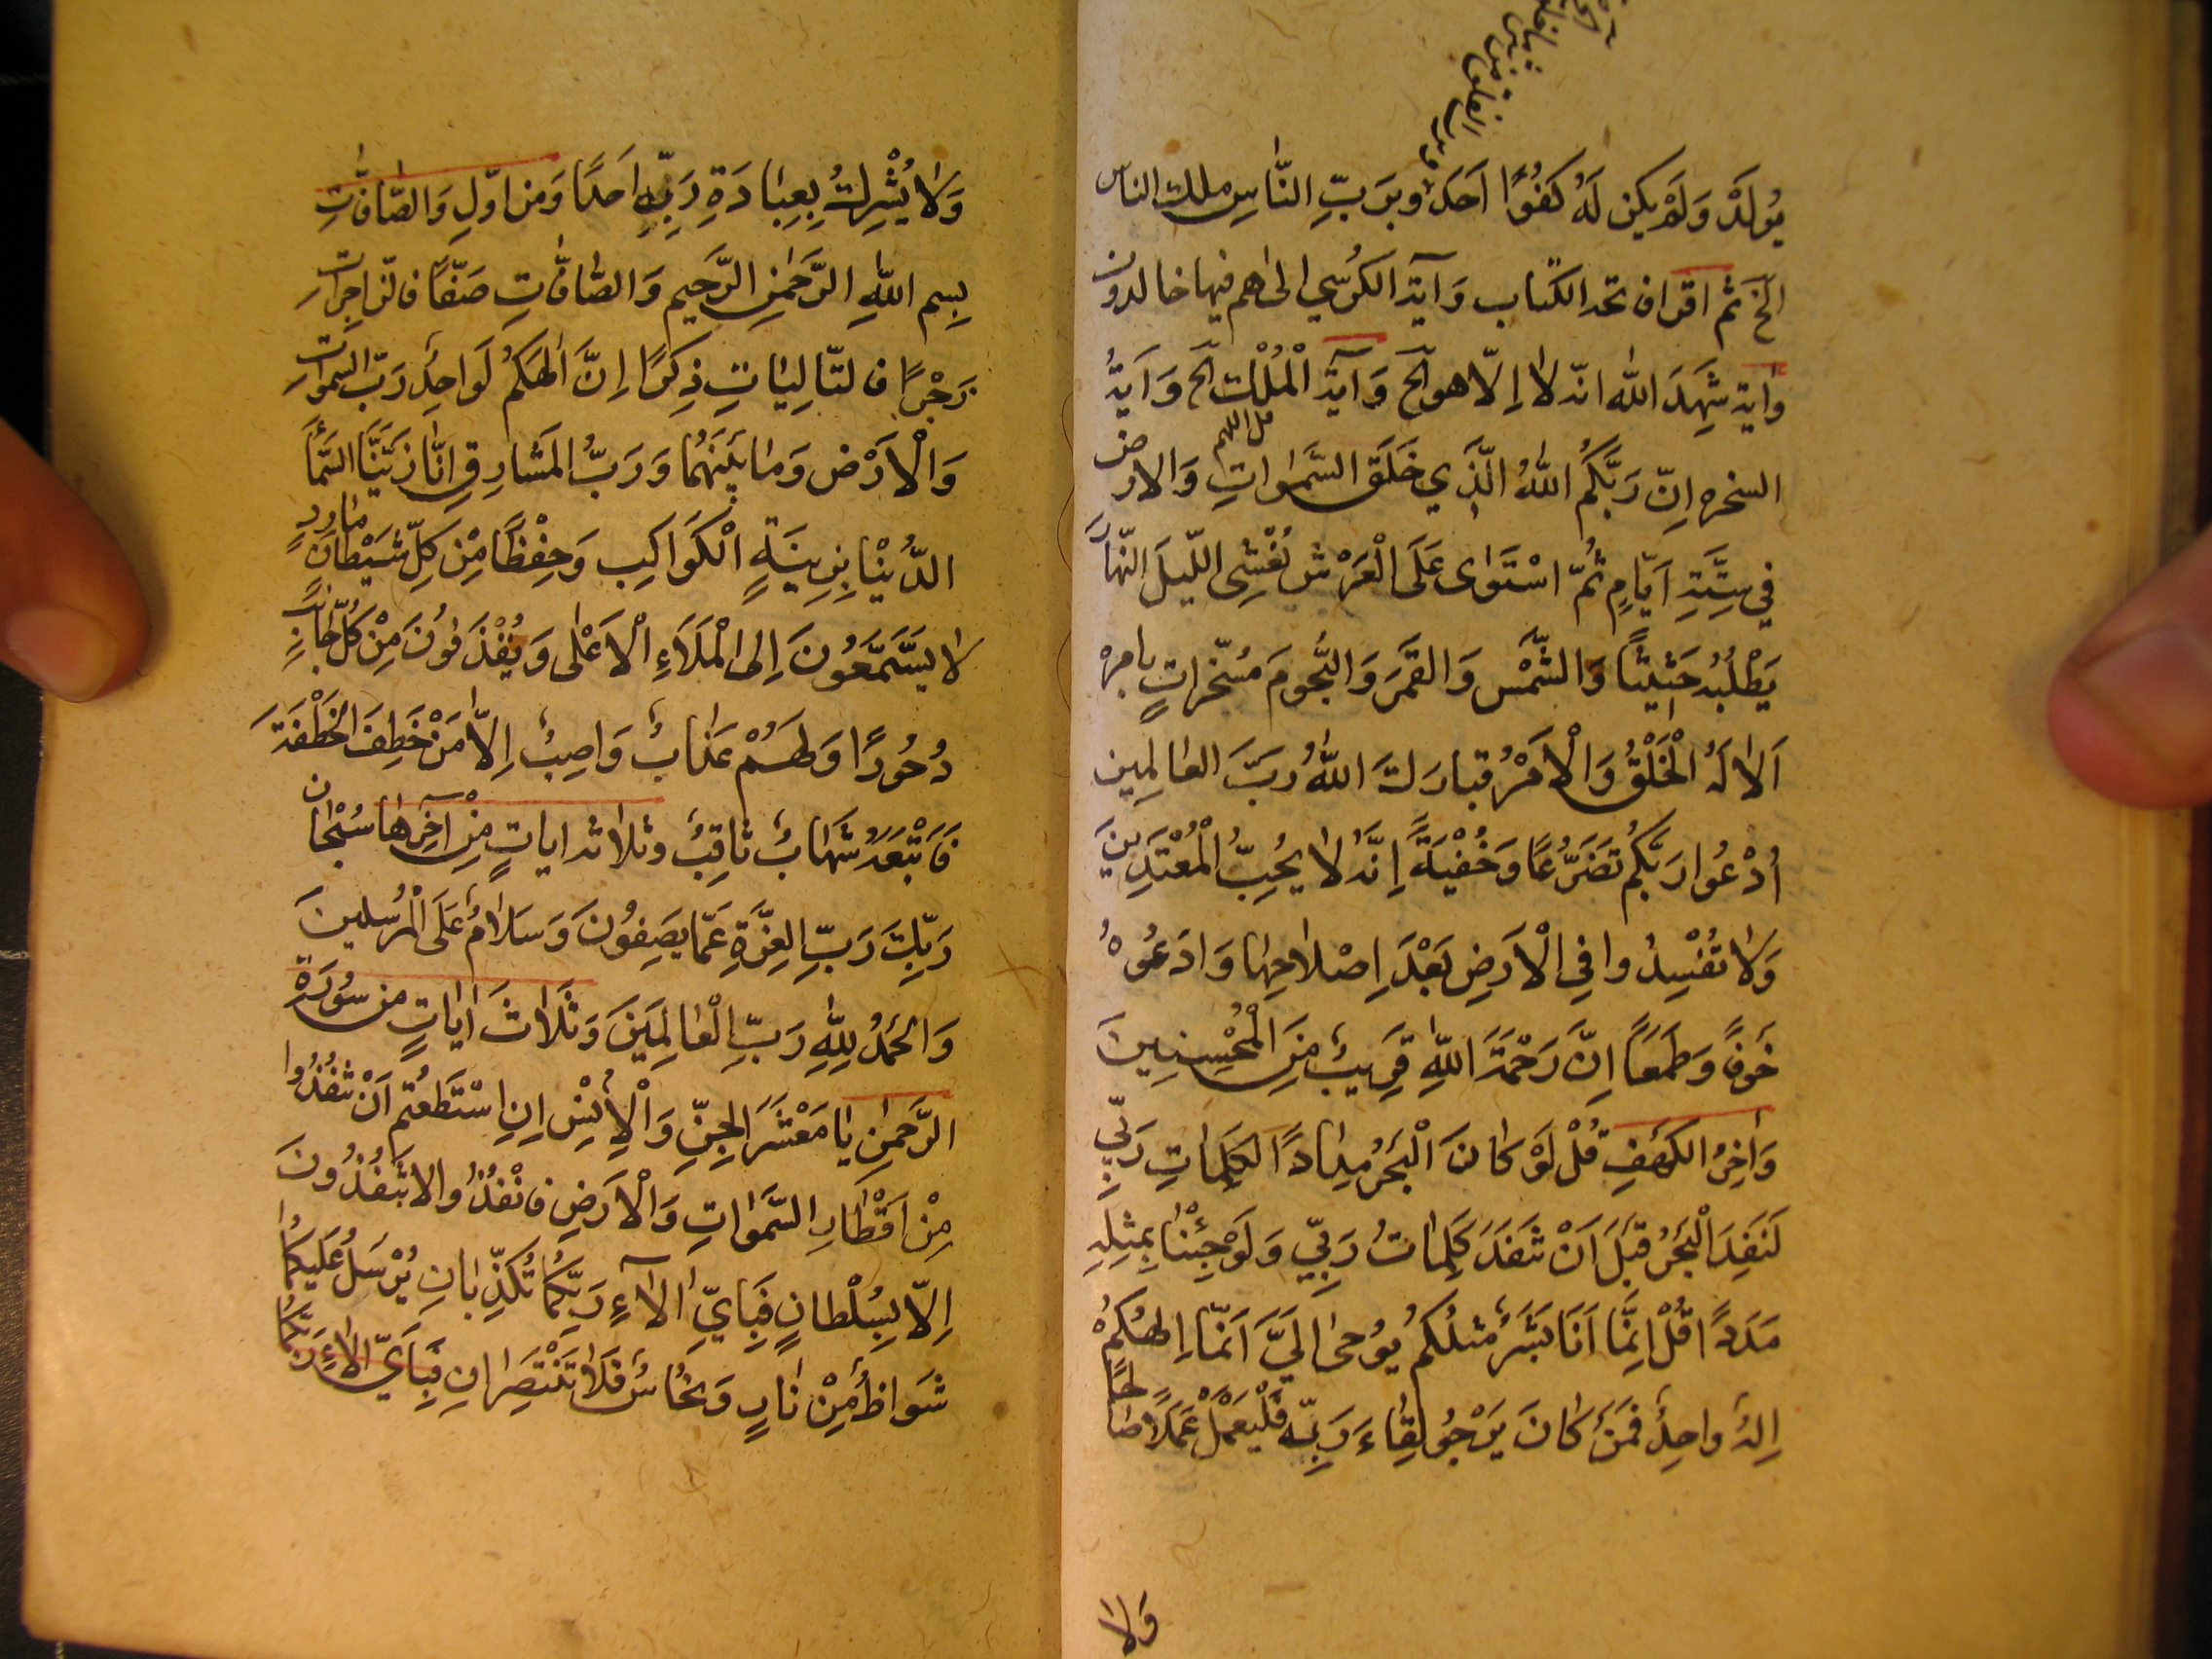 يُولَدْ وَلَمْ يَكُن لَهُ كُفُوًا اَحَدٌ وبرَبِّ النَّاسِ ملك الناس
الخ ثم اقرا فاتحة الكتاب وَآية الكُرْسِي الى هم فيها خالدون
واٰية شَهِدَ الله انّه لا اِلٰه اِلّا هو الخ وَآية قل اللهم الْمُلْك الخ وَآيَةُ
السخره اِنّ رَبَّكُمُ اللهُ الَّذِي خَلَقَ السَّمٰوَاتِ وَالارض
فِي سِتَّةِ اَيّامٍ ثُمّ اسْتَوٰى عَلَى الْعَرْشِ يُغْشِى اللّيلَ النّهَارَ
يَطْلُبُه حَثِيثًا وَالشَّمْسَ وَالقَمَرَ وَالنُّجُومَ مُسَخّراتٍ بامره
اَلَا لَهُ الْخَلْقُ وَالْاَمْرُ تبارَكَ اللهُ رَبَّ العالَمِين
اُدْعُوا رَبَّكُمْ تَضَرُّعًا وَخُفْيَةً اِنَّهُ لا يُحِبُّ الْمُعْتَدِينَ
وَلَا تُفْسِدُوا فِي الْاَرَضِ بَعْدَ اِصْلاحِهَا وَادْعُوهُ
خَوفًا وَطَمَعًا اِنَّ رَحْمَةَ اللهِ قَرِيبٌ مِنَ الْمُحْسِنِينَ
وَآخِرُ الكَهَفِ قُلْ لَوْ كَانَ الْبَحْرُ مِدَادًا لِكَلِمَاتِ رَبِّي
لَنَفِدَ الْبَحْرُ قَبَلَ اَنْ تَنفَدَ كَلِمَاتُ رَبِّي وَلَوْ جِئْنَا بِمِثلِهِ
مَدَدًا قُلْ اِنَّمَا اَنَا بَشَرٌ مثلُكُم يُوحىٰ اِلَيَّ اَنّمَا اِلٰهُكُمْ
اِلهٌ واحِدٌ فَمَنْ كَانَ يَرْجُو لِقَاءَ رَبِّهِ فَلْيَعْمَلْ عَمَلًا صَالِحًا
وَلَا
وَلَا يُشْرِكُ بِعِبَادَةِ رَبِّهِ اَحَدًا وَمن اوّلِ وَالصَّافَّاتِ
بِسِم اللهِ الرَّحْمٰنِ الرَّحِيمِ وَالصَّافَّاتِ صَفًّا فالزاجِراتِ
زَجْرًا فالتَّالِيَاتِ ذِكرًا اِنَّ اِلٰهَكُمْ لَواحِدٌ رَبّ السموات
وَالْاَرْضِ وَمَا بَيْنَهُمَا وَرَبُّ المَشَارِقِ اِنَّا زَيَّنَّا السَّمَاءَ
الدُّنْيَا بِزِينَةٍ الْكَوَاكِبِ وَحِفْظًا مِنْ كلِّ شَيْطانٍ مَارِدٍ
لَا يَسَّمَّعُونَ اِلى الْمَلَاءِ الْاَعْلٰى وَيُقْذَفُونَ مِنْ كُلِّ جَانِبٍ
دُحُورًا وَلهُمْ عَذابٌ وَاصِبٌ اِلَّا مَنْ خَطِفَ الْخَطْفَةَ
فَاَتْبَعَهُ شَهَابٌ ثاقِبٌ وثلاثه اياتٍ مِنْ آخِرِهَا سُبْحَان
رَبِّكَ رَبِّ العِزَّةِ عَمّا يَصِفُونَ وَسَلَامٌ عَلَى الْمُرْسلينَ
وَالحَمْدُ لِلّٰهِ رَبِّ الْعالَمِينَ وَثَلَاثَ اٰيَاتٍ من سُورَة
الرَّحْمٰنِ يَا مَعْشَرَ الجِنِّ وَالْاِنْسِ اِنِ اسْتَطَعْتُم اَنْ تَنفُذُوا
مِنْ اَقْطَارِ السَّمٰوَاتِ وَالْاَرَضِ فانْفُذُوا لا تَنفُذُونَ
اِلّا بِسُلْطانٍ فَبِايِّ آلآءِ رَبِّكُمَا تُكَذِّبَانِ يُرْسَلُ عَلَيْكُمَا
شَوَاظٌ مِنْ نارٍ وَنُحَاسٌ فَلَا تَنْتَصِرَانِ فَبِاَيِّ اٰلآءِ رَبِّكُمَا